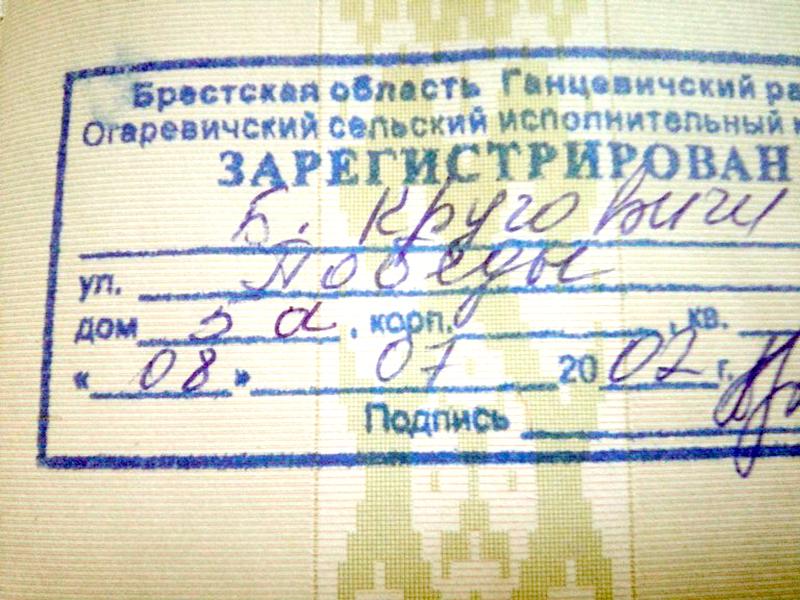 Брестская область Ганцевичский ра
Огаревичский сельский исполнительный к
ЗАРЕГИСТРИРОВАН
Б. Круговичи
ул. Победы
дом 5 а, корп. , кв.
«08» 07 2002 г.
Подпись